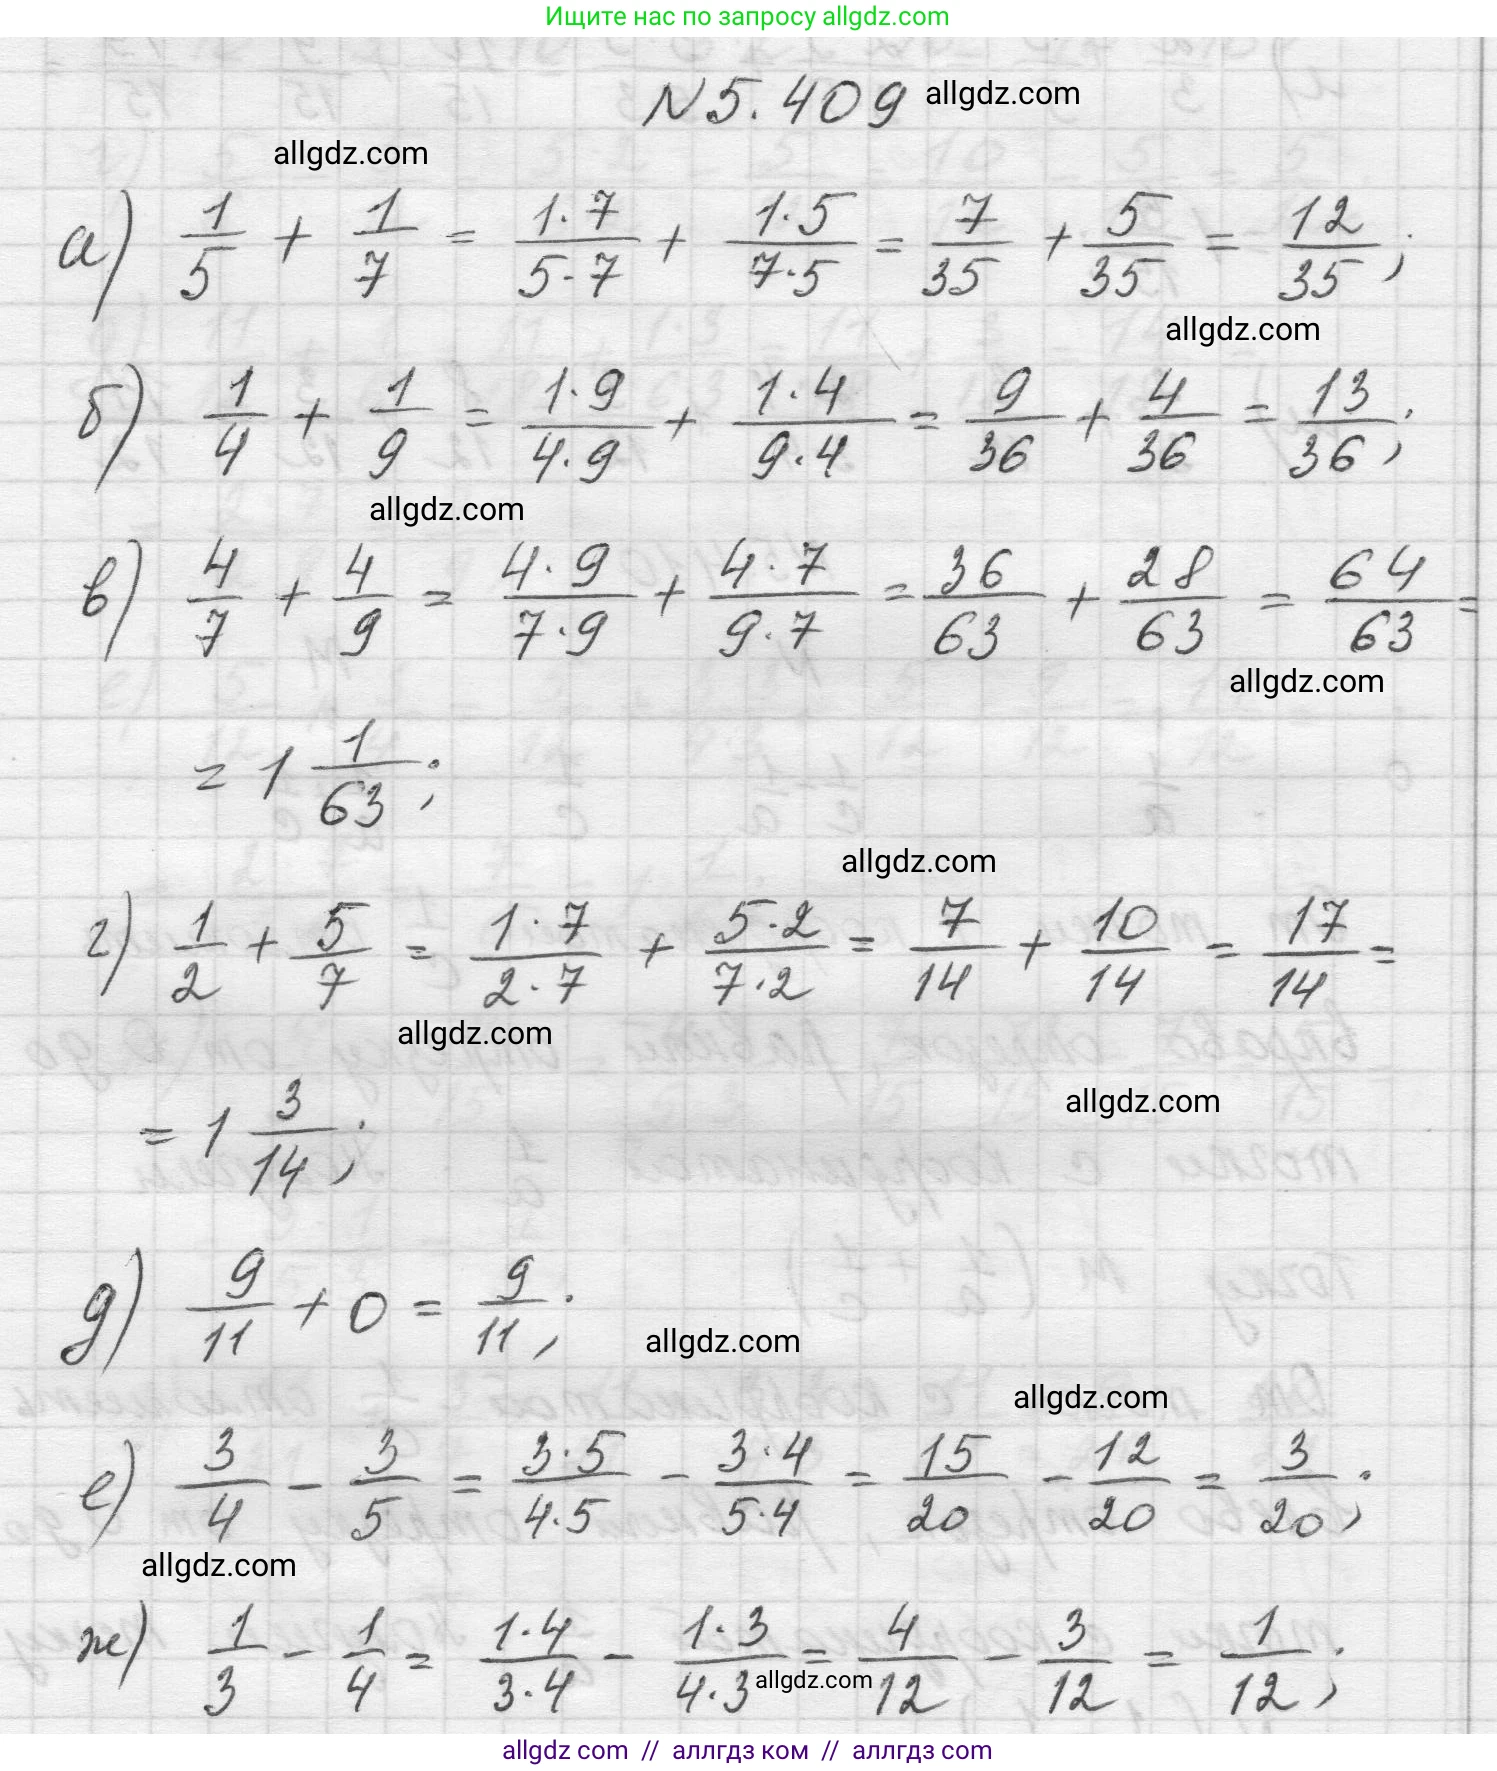 Ищите нас по запросу allgdz.com
N 5.409 allgdz.com
allgdz.com
а) 1/5 + 1/7 = 1·7/5·7 + 1·5/7·5 = 7/35 + 5/35 = 12/35;
allgdz.com
б) 1/4 + 1/9 = 1·9/4·9 + 1·4/9·4 = 9/36 + 4/36 = 13/36;
allgdz.com
в) 4/7 + 4/9 = 4·9/7·9 + 4·7/9·7 = 36/63 + 28/63 = 64/63 =
allgdz.com
= 1 1/63;
allgdz.com
г) 1/2 + 5/7 = 1·7/2·7 + 5·2/7·2 = 7/14 + 10/14 = 17/14 =
allgdz.com
allgdz.com
= 1 3/14;
д) 9/11 + 0 = 9/11;
allgdz.com
allgdz.com
е) 3/4 - 3/5 = 3·5/4·5 - 3·4/5·4 = 15/20 - 12/20 = 3/20;
allgdz.com
ж) 1/3 - 1/4 = 1·4/3·4 - 1·3/4·3 = 4/12 - 3/12 = 1/12;
allgdz.com
allgdz com // аллгдз ком // аллгдз com